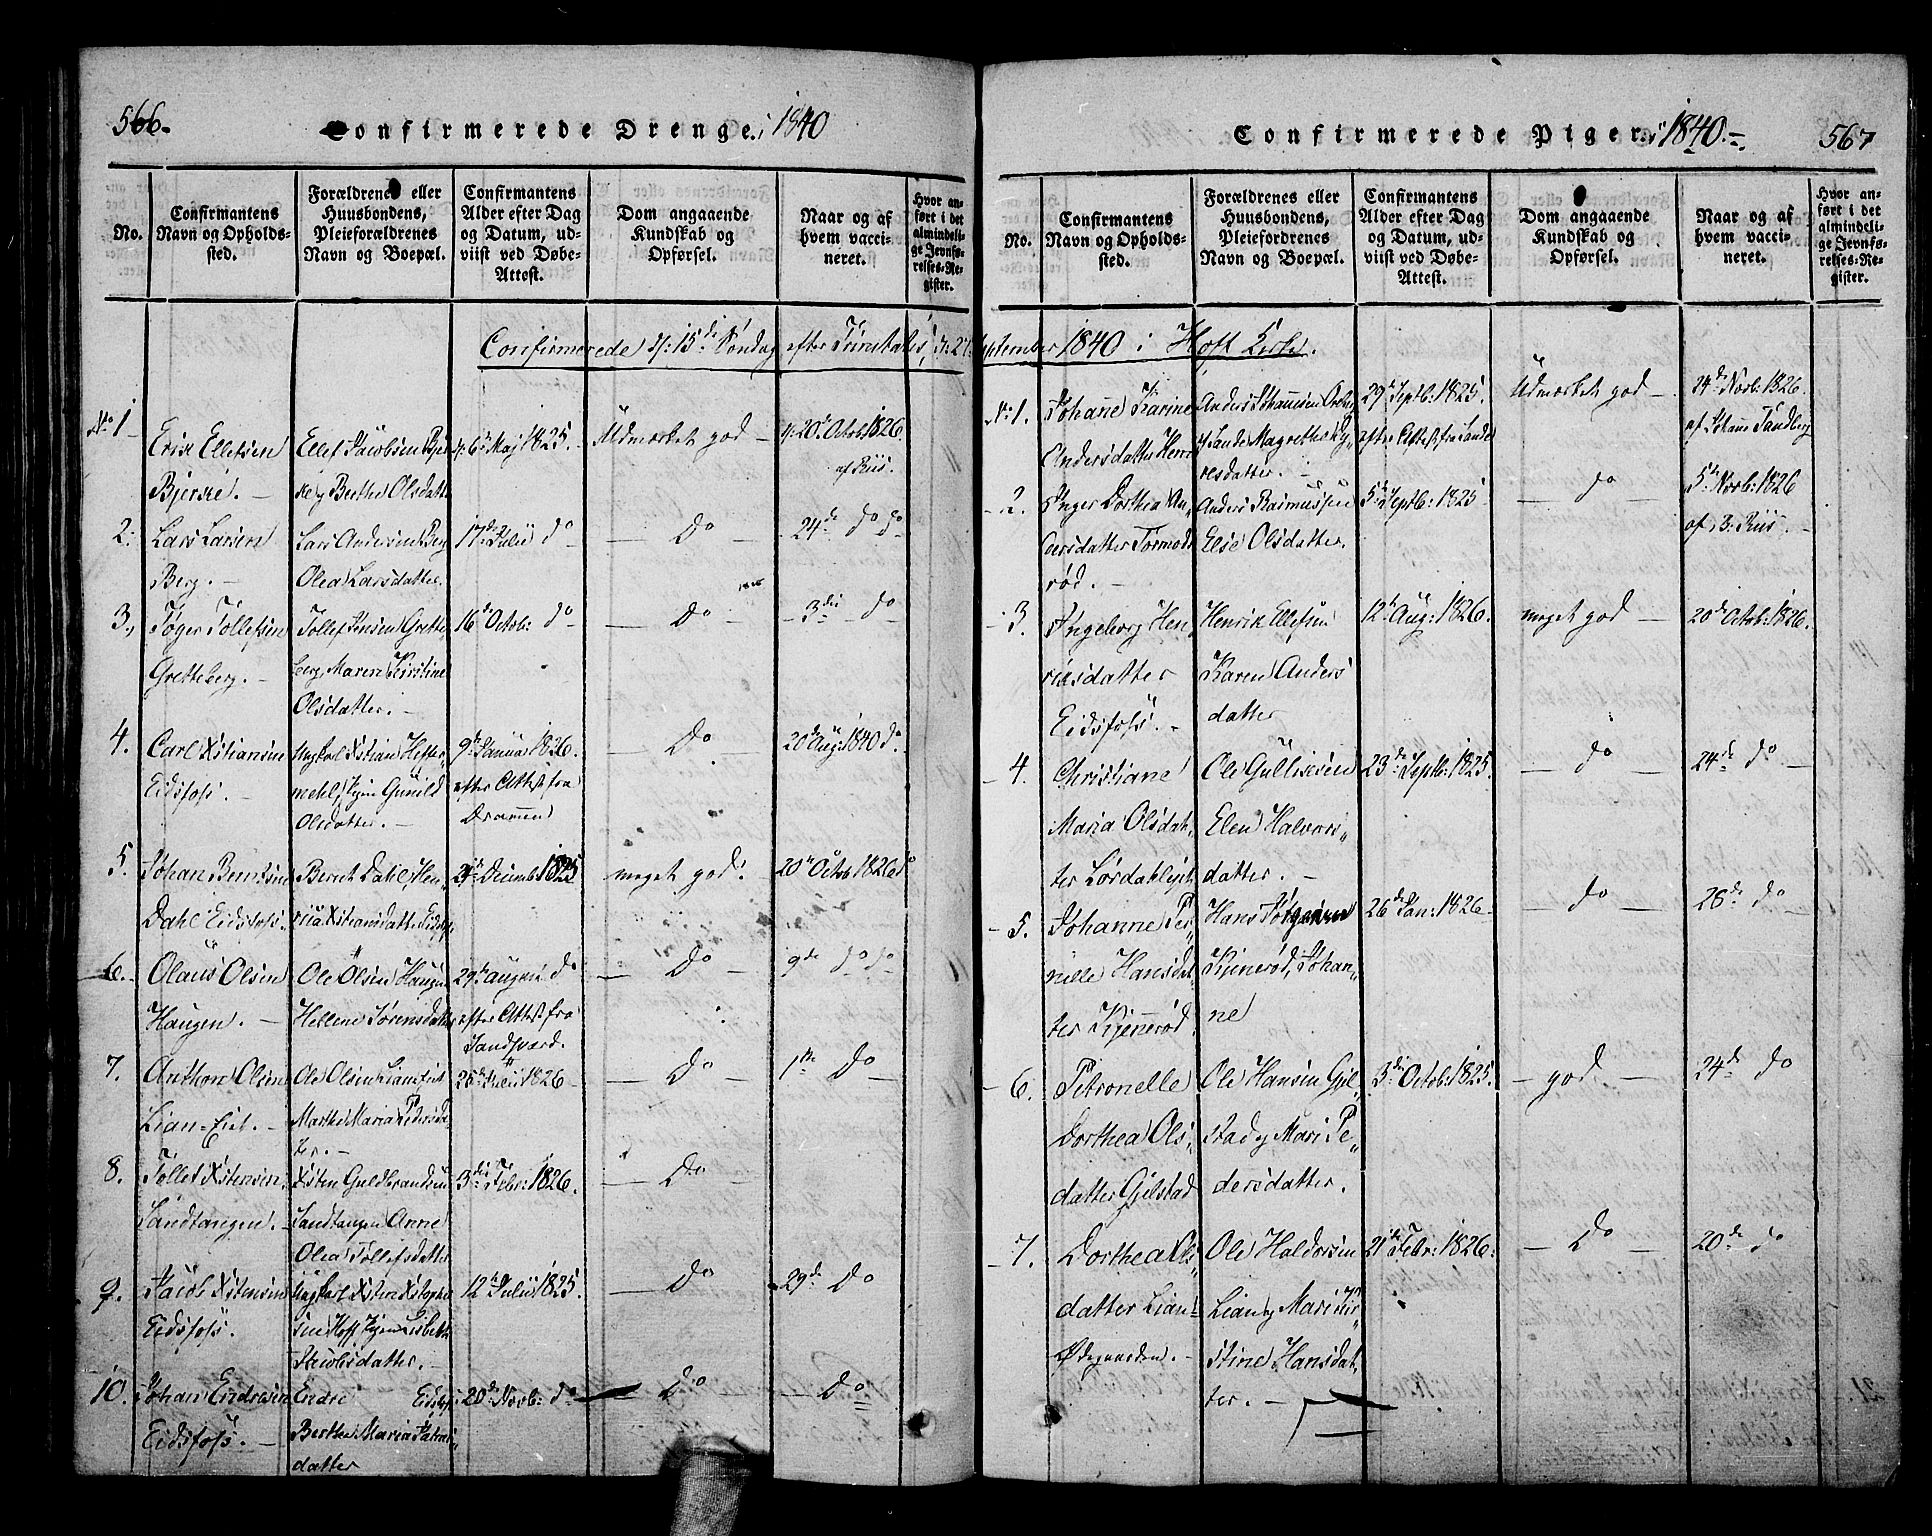 566.
Confirmerede Drenge i 1840
No.
Confirmantens
Navn og Opholds-
sted.
Forældrenes eller
Huusbondens,
Pleieforældrenes
Navn og Boepæl.
Confirmantens
Alder efter Dag
og Datum, ud-
viist ved Døbe-
Attest.
Dom angaaende
Kundskab og
Opførsel.
Naar og af
hvem vacci-
neret.
Hvor an-
ført i det
almindeli-
ge Jevnfø-
relses-Re-
gister.
Confirmerede d: 15de Søndag efter Trinitatis, d: 27
No 1
Erik Ellefsen
Bjerke. -
Ellef Jacobsen
og Berthe Olsdatter
d: 6te Maj 1825. -
Udmerket god -
d: 20de Octob: 1826.
af Riis.
2.
Lars Larsen
Berg. -
Lars Andersen Berg
Olea Larsdatter.
17de Julii do -
- Do -
24de do do -
3.
Tøger Tollefsen
Gretteberg. -
Tollef Jensen Grette
berg, Maren Kirstine
Olsdatter. -
16de Octob: do
- Do -
- 3die do
4.
Carl Xstiansen
Eidsfoss. -
Ungkarl Xstian
Pigen Gunild
Olsdatter. -
9de Januar 1826.
efter Attest fra
Drammen
- Do
20de Aug: 1840 do.
5.
Johan Berntsen
Dahl Eidsfoss.
Bernt Dahl, Hen-
Xstiansdatter
Decemb: 1825
meget god. -
20de Octob 1826 do
6.
Olaus Olsen
Haugen. -
Ole Olsen Haugen
Hellene Sørensdatter
29de do
efter Attest fra
Sandsværd.
- Do -
9de do do
7.
Anthon Olsen
Lian-Eiet. -
Ole Olsen Lianeiet
Marthe Maria Pedersdat
ter. -
Julii 1826 -
- Do -
1ste Do
8.
Tollef Xstensen
Sandtangen. -
Xsten Guldbrandsen
Sandtangen Anne
Olea Tollefsdatter
3die Febr: 1826.
- Do
9.
Jacob Xstensen
Eidsfoss.
Ungkarl Xsten Xstophe
sen Hoff, Pigen Lisbeth
Jacobsdatter. -
12te Julii 1825.
- Do
29de Do
10.
Johan Endresen
Eidsfoss. -
Endre Eidsfoss
Berthe Maria
datter
20de Novb: do
- Do
- Do -
567
Confirmerede Piger i 1840. -
No.
Confirmantens
Navn og Opholds-
sted.
Forældrenes eller
Huusbondens,
Pleiefordrenes
Navn og Boepæl.
Confirmantens
Alder efter Dag
og Datum, ud-
viist ved Døbe-
Attest.
Dom angaaende
Kundskab og
Opførsel.
Naar og af
hvem vacci-
neret.
Hvor an-
ført i det
almindeli-
ge Jevnfø-
relses-Re-
gister.
September 1840 i Hoff Kirke.
No: 1.
Johane Karine
Andersdatter
Anders
Sande Magrethe
datter. -
29de Septb: 1825.
efter Attest fra Sande
Udmerket god -
24de Novb: 1826
af Johane Sandberg
- 2.
Inger Dorthea An-
dersdatter Tormods
rød. -
Anders Rasmussen
Else Olsdatter.
5te Septb: 1825
- do -
5te Novb: 1826
af B. Riis. -
- 3.
Ingeborg Hen-
riksdatter
Eidsfoss. -
Henrik Ellefsen
Karen Anders
datter
12te Aug: 1826.
meget god -
20de Octob: 1826.
- 4.
Christiane
Maria Olsdat-
ter
Ole Gulliksen
Elen Halvors-
datter. -
23de Septb: 1825.
- do -
24de do
- 5.
Johanne Per-
nille Hansdat-
ter Kjennerød.
Hans
Kjennerød, Johan-
ne
26de Jan: 1826 -
- do -
28de do
- 6.
Petronelle
Dorthea Ols-
datter Gjelstad
Ole Hansen Gjel-
stad og Mari Pe-
dersdatter.
3die Octob: 1825.
- god -
24de do
- 7.
Dorthea Ols-
datter Lian-
Ødegaarden. -
Ole Haldorsen
Lian og Mari Kir-
stine Hansdat-
ter. -
21de Febr: 1826.
- Do -
20de do